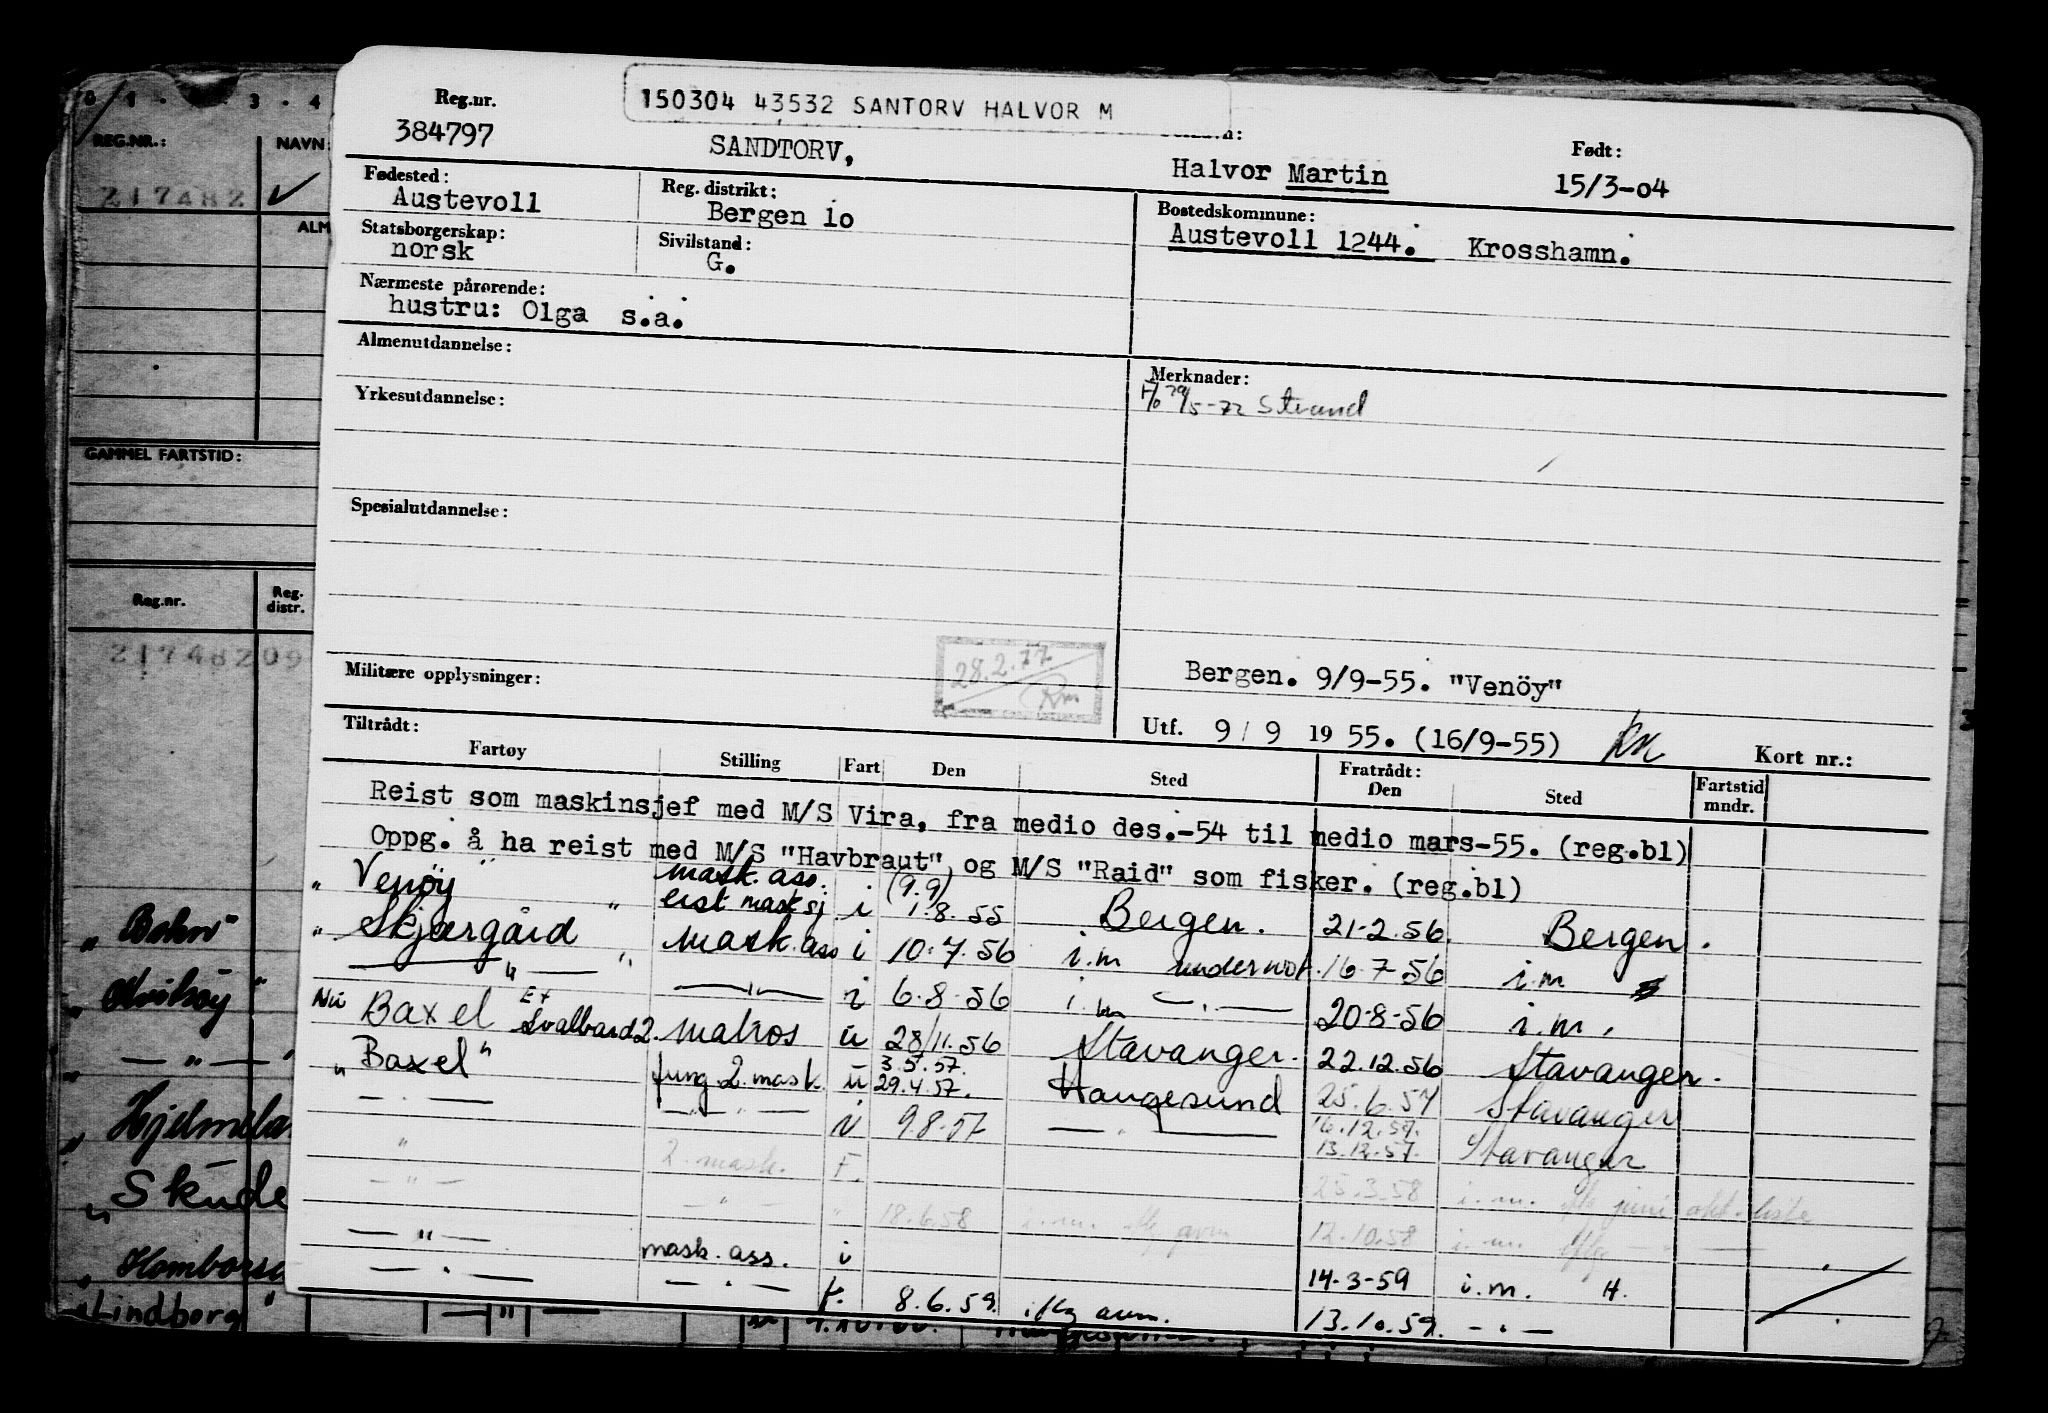 150304 43532 SANTORV HALVOR M
Reg.nr. Født:
384797 SANDTORV, Halvor Martin 15/3-04
Fødested: Reg. distrikt: Bostedskommune:
Austevoll Bergen io Austevoll 1244. Krosshamn.
Statsborgerskap: Sivilstand:
norsk G.
Nærmeste pårørende:
hustru: Olga s.a.
Almenutdannelse: Merknader:
5-72 Strand
Yrkesutdannelse:
Spesialutdannelse:
28.2.77
Militære opplysninger: Bergen. 9/9-55. "Venöy"
Utf. 9/9 1955. (16/9-55) Kort nr.:
Tiltrådt: Fratrådt:
Fartøy Stilling Fart Den Sted Den Sted Fartstid mndr.
Reist som maskinsjef med M/S Vira, fra medio des.-54 til medio mars-55. (reg.bl)
Oppg. å ha reist med M/S "Havbraut", og M/S "Raid" som fisker. (reg.bl)
" Venöy " mask. ass. (9.9)
eist mask sj i 1.8.55 Bergen. 21-2.56. Bergen.
" Skjærgård " mask. ass i 10.7.56 i.m undernot. 16.7-56 i.m
— " — — " — i 6.8-56 i.m — " — 20-8-56 i.m.
Nu Baxel Ex Svalbard 2. matros u 28/11.56 Stavanger. 22.12.56 Stavanger.
3.5.57.
" Baxel " fung. 2. mask. u 29.4.57. Haugesund 25.6.57 Stavanger
— " — — " — i 9.8.57 — " — 16.12.57.
13.12.57. Stavanger
" 2. mask. F. 25.3.58 i.m. juni okt. liste
— " — — " — " 18.6.58 i.m. 12.10.58 i.m.
— " — mask. ass. i 14-3-59 i.m. H.
— " — — " — f. 8.6.59. 13.10.59. — " —
0 1 . 3 . 4
REG.NR.: NAVN
217482
ALM
GAMMEL FARTSTID:
Reg.nr. Reg. distr.
21748209
Skude
"Lindborg"